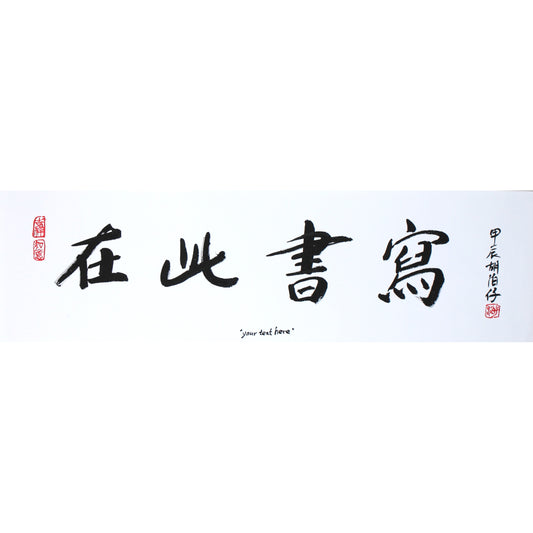 在此書寫
"your text here"
甲辰胡伯仔